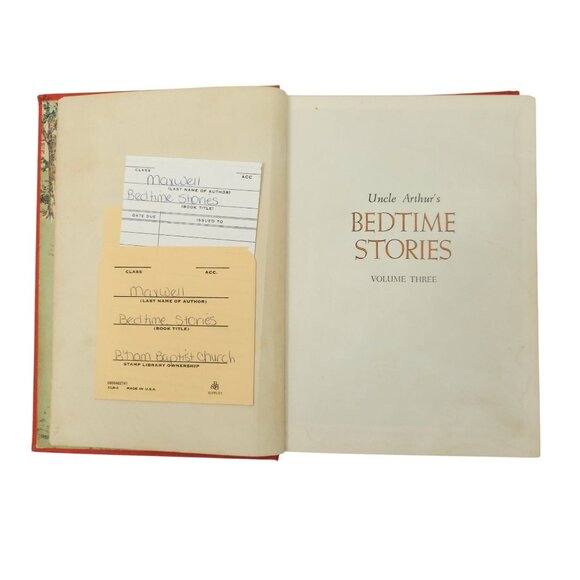 CLASS ACC.
Maxwell
(LAST NAME OF AUTHOR)
Bedtime Stories
(BOOK TITLE)
DATE DUE ISSUED TO
CLASS ACC.
Maxwell
(LAST NAME OF AUTHOR)
Bedtime Stories
(BOOK TITLE)
B'ham Baptist Church
STAMP LIBRARY OWNERSHIP
MADE IN U.S.A.
Uncle Arthur's
BEDTIME
STORIES
VOLUME THREE